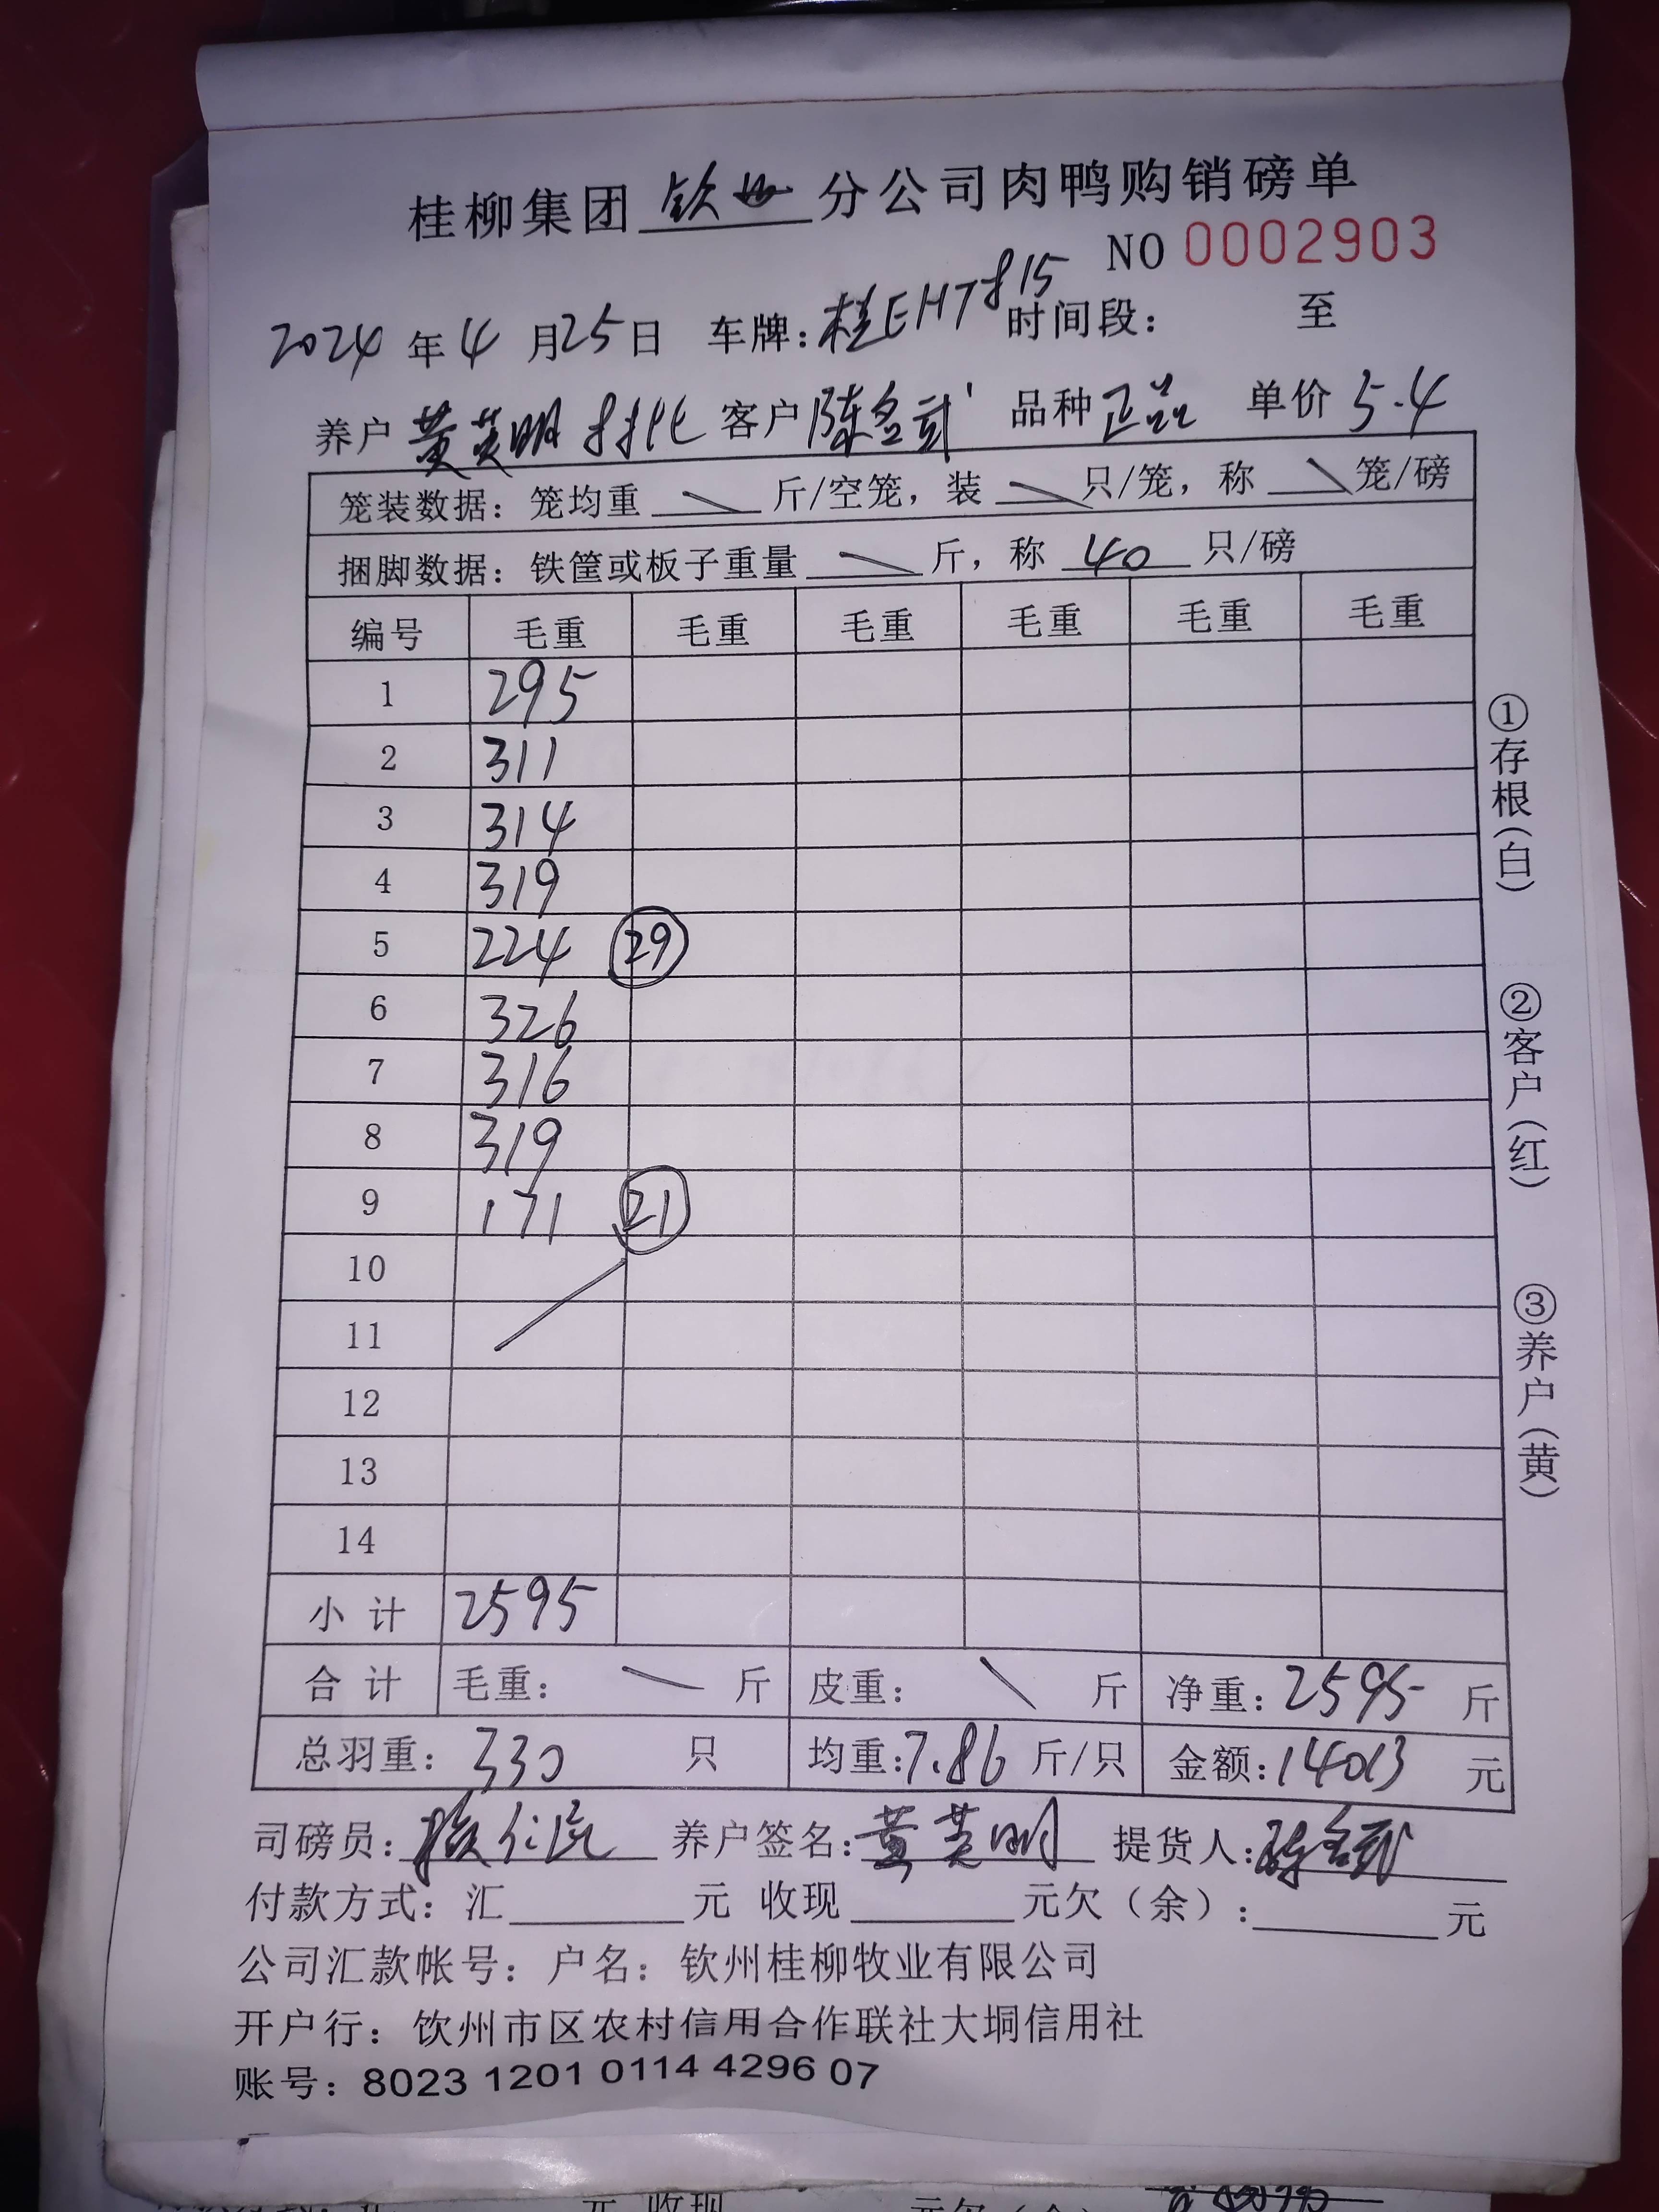 桂柳集团 钦州 分公司肉鸭购销磅单
NO 0002903
2024 年 4 月 25 日 车牌: 桂EHT815 时间段: 至
养户 黄英明 客户 陈名武 品种 正品 单价 5.4
笼装数据: 笼均重 \ 斤/空笼, 装 \ 只/笼, 称 \ 笼/磅
捆脚数据: 铁筐或板子重量 \ 斤, 称 40 只/磅
编号 毛重 毛重 毛重 毛重 毛重 毛重
1 295
2 311
3 314
4 319
5 224 29
6 326
7 316
8 319
9 171 21
10
11
12
13
14
小计 2595
合计 毛重: \ 斤 皮重: \ 斤 净重: 2595 斤
总羽重: 330 只 均重: 7.86 斤/只 金额: 14013 元
司磅员: 养户签名: 黄英明 提货人: 陈名武
付款方式: 汇 元 收现 元欠(余): 元
公司汇款帐号: 户名: 钦州桂柳牧业有限公司
开户行: 钦州市区农村信用合作联社大垌信用社
账号: 8023 1201 0114 4296 07
①存根(白)
②客户(红)
③养户(黄)